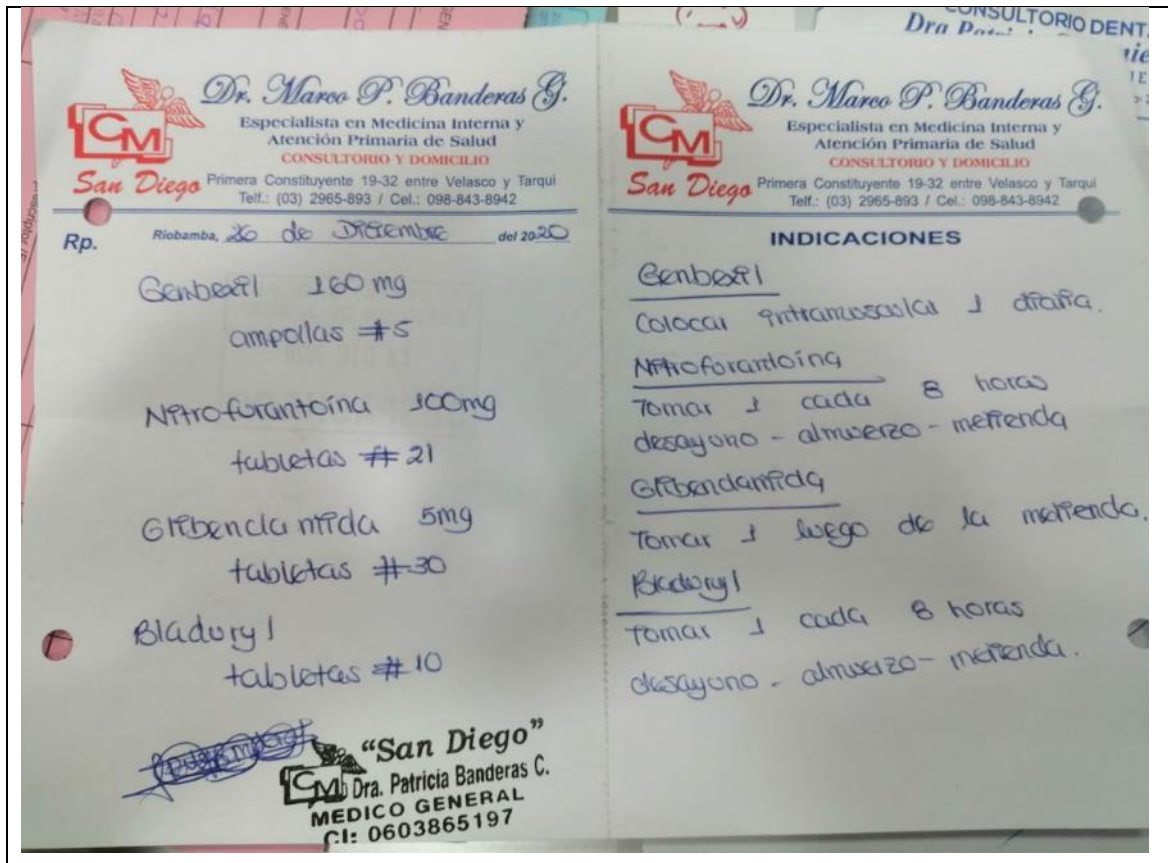 CONSULTORIO DENT
Dra
Dr. Marco P. Banderas G.
Especialista en Medicina Interna y
Atención Primaria de Salud
CONSULTORIO Y DOMICILIO
CM
San Diego
Primera Constituyente 19-32 entre Velasco y Tarqui
Telf.: (03) 2965-893 / Cel.: 098-843-8942
Rp.
Riobamba, 26 de Diciembre del 2020
Genbexil 160 mg
ampollas #5
Nitrofurantoína 100mg
tabletas # 21
Glibenclamida 5mg
tabletas #30
Bladuryl
tabletas #10
"San Diego"
CM Dra. Patricia Banderas C.
MEDICO GENERAL
CI: 0603865197
Dr. Marco P. Banderas G.
Especialista en Medicina Interna y
Atención Primaria de Salud
CONSULTORIO Y DOMICILIO
CM
San Diego
Primera Constituyente 19-32 entre Velasco y Tarqui
Telf.: (03) 2965-893 / Cel.: 098-843-8942
INDICACIONES
Genbexil
Colocar intramuscular 1 diaria.
Nitrofurantoína
Tomar 1 cada 8 horas
desayuno - almuerzo - merienda
Glibenclamida
Tomar 1 luego de la merienda.
Bladuryl
Tomar 1 cada 8 horas
desayuno - almuerzo - merienda.